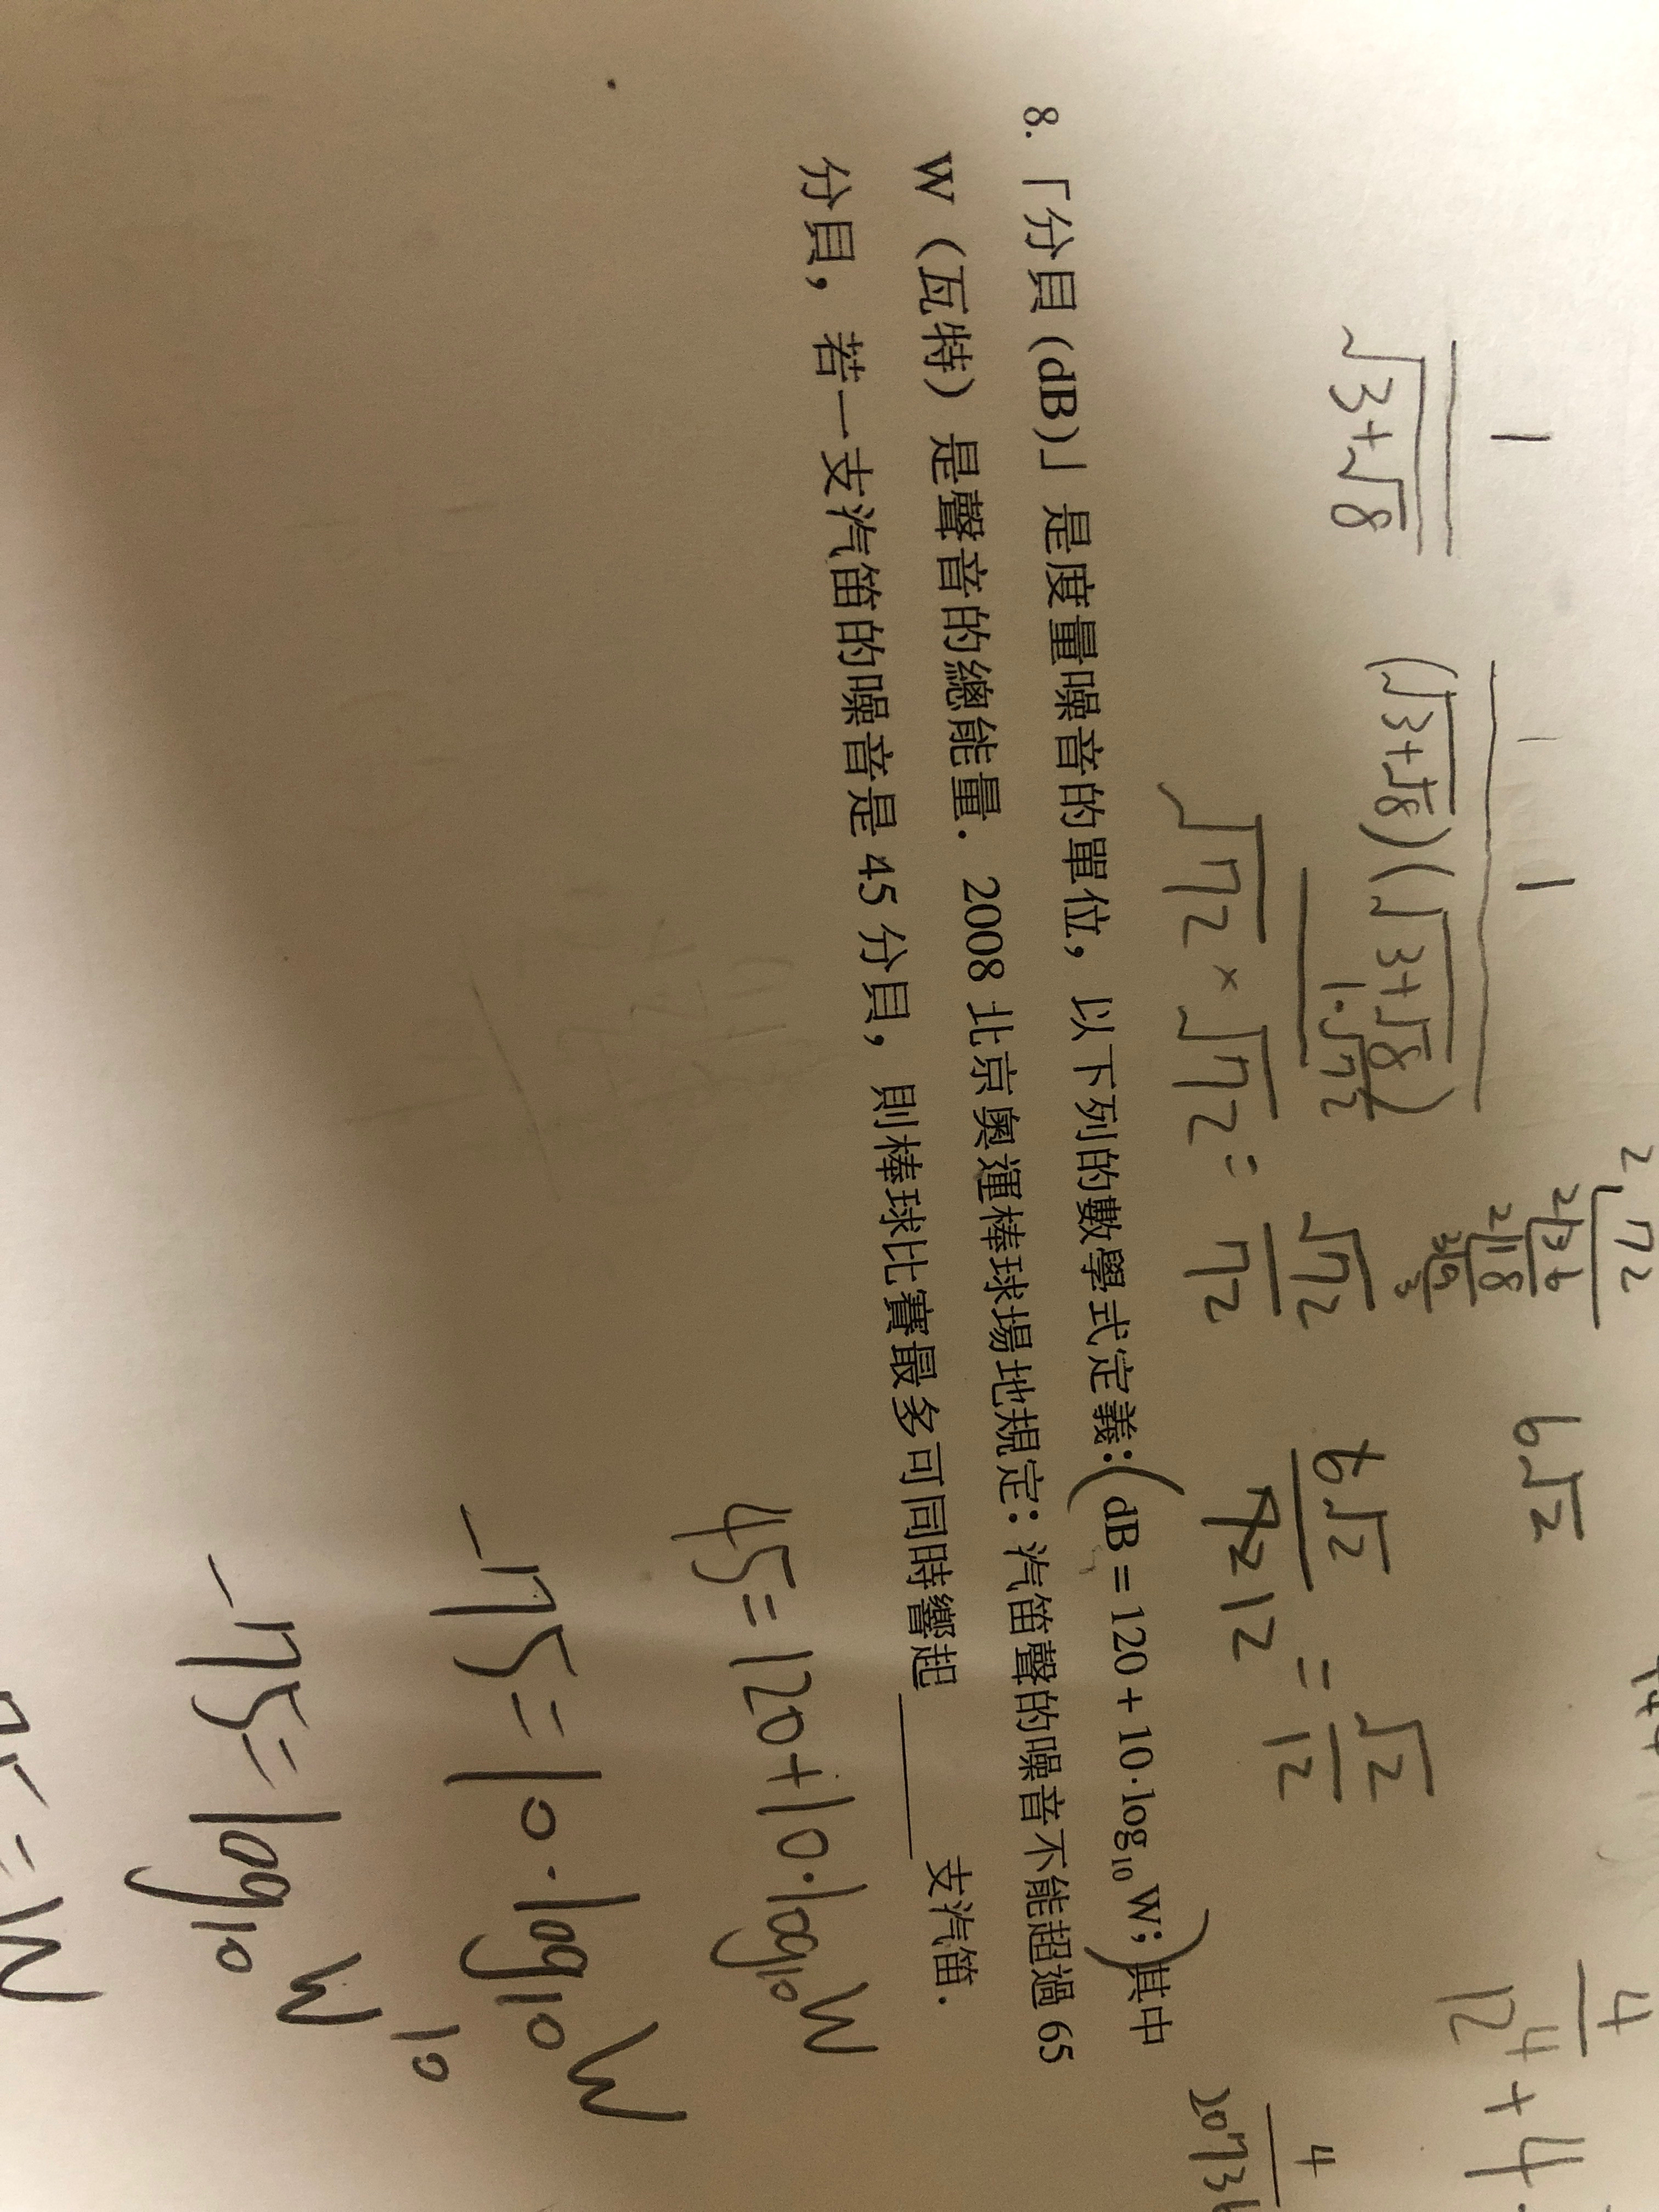 1
√(3+√8)
1
(√(3+√8))(√(3+√8))
1·√72
√72 × √72 = √72/72
2 72
2 36
2 18
3 9
3
6√2
6√2/72 12 = √2/12
4
12 4 + 4
4
8. 「分貝 (dB)」是度量噪音的單位，以下列的數學式定義：(dB = 120 + 10·log₁₀ W；)其中
W（瓦特）是聲音的總能量．2008 北京奧運棒球場地規定：汽笛聲的噪音不能超過 65
分貝，若一支汽笛的噪音是 45 分貝，則棒球比賽最多可同時響起______支汽笛．
45=120+10·log₁₀W
-75=10·log₁₀W
-75=log₁₀W¹⁰
= W